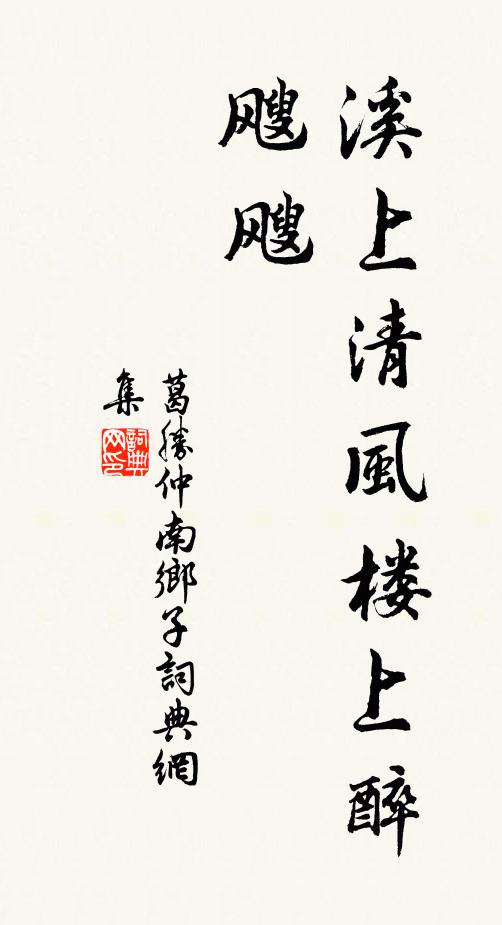 溪上清風楼上醉
飕飕
葛勝仲南鄉子詞典網
集
詞典
网印